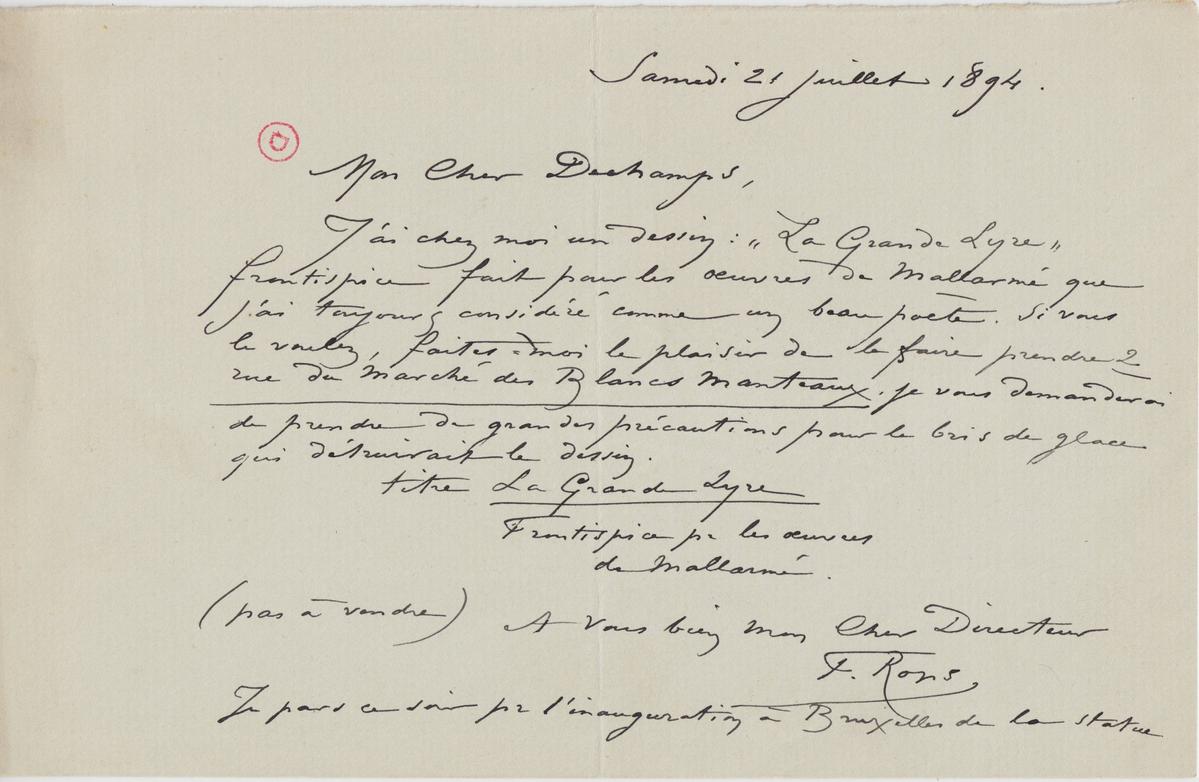 Samedi 21 juillet 1894.
Mon Cher Dechamps,
J'ai chez moi un dessin : „ La Grande Lyre „
frontispice fait pour les œuvres de Mallarmé que
j'ai toujours considéré comme un beau poète. Si vous
le voulez, faites-moi le plaisir de le faire prendre 2
rue du Marché des Blancs Manteaux. je vous demanderai
de prendre de grandes précautions pour le bris de glace
qui détruirait le dessin.
titre La Grande Lyre
Frontispice pr les œuvres
de Mallarmé.
(pas à vendre)
A vous bien mon Cher Directeur
F. Rops
Je pars ce soir pr l'inauguration à Bruxelles de la statue